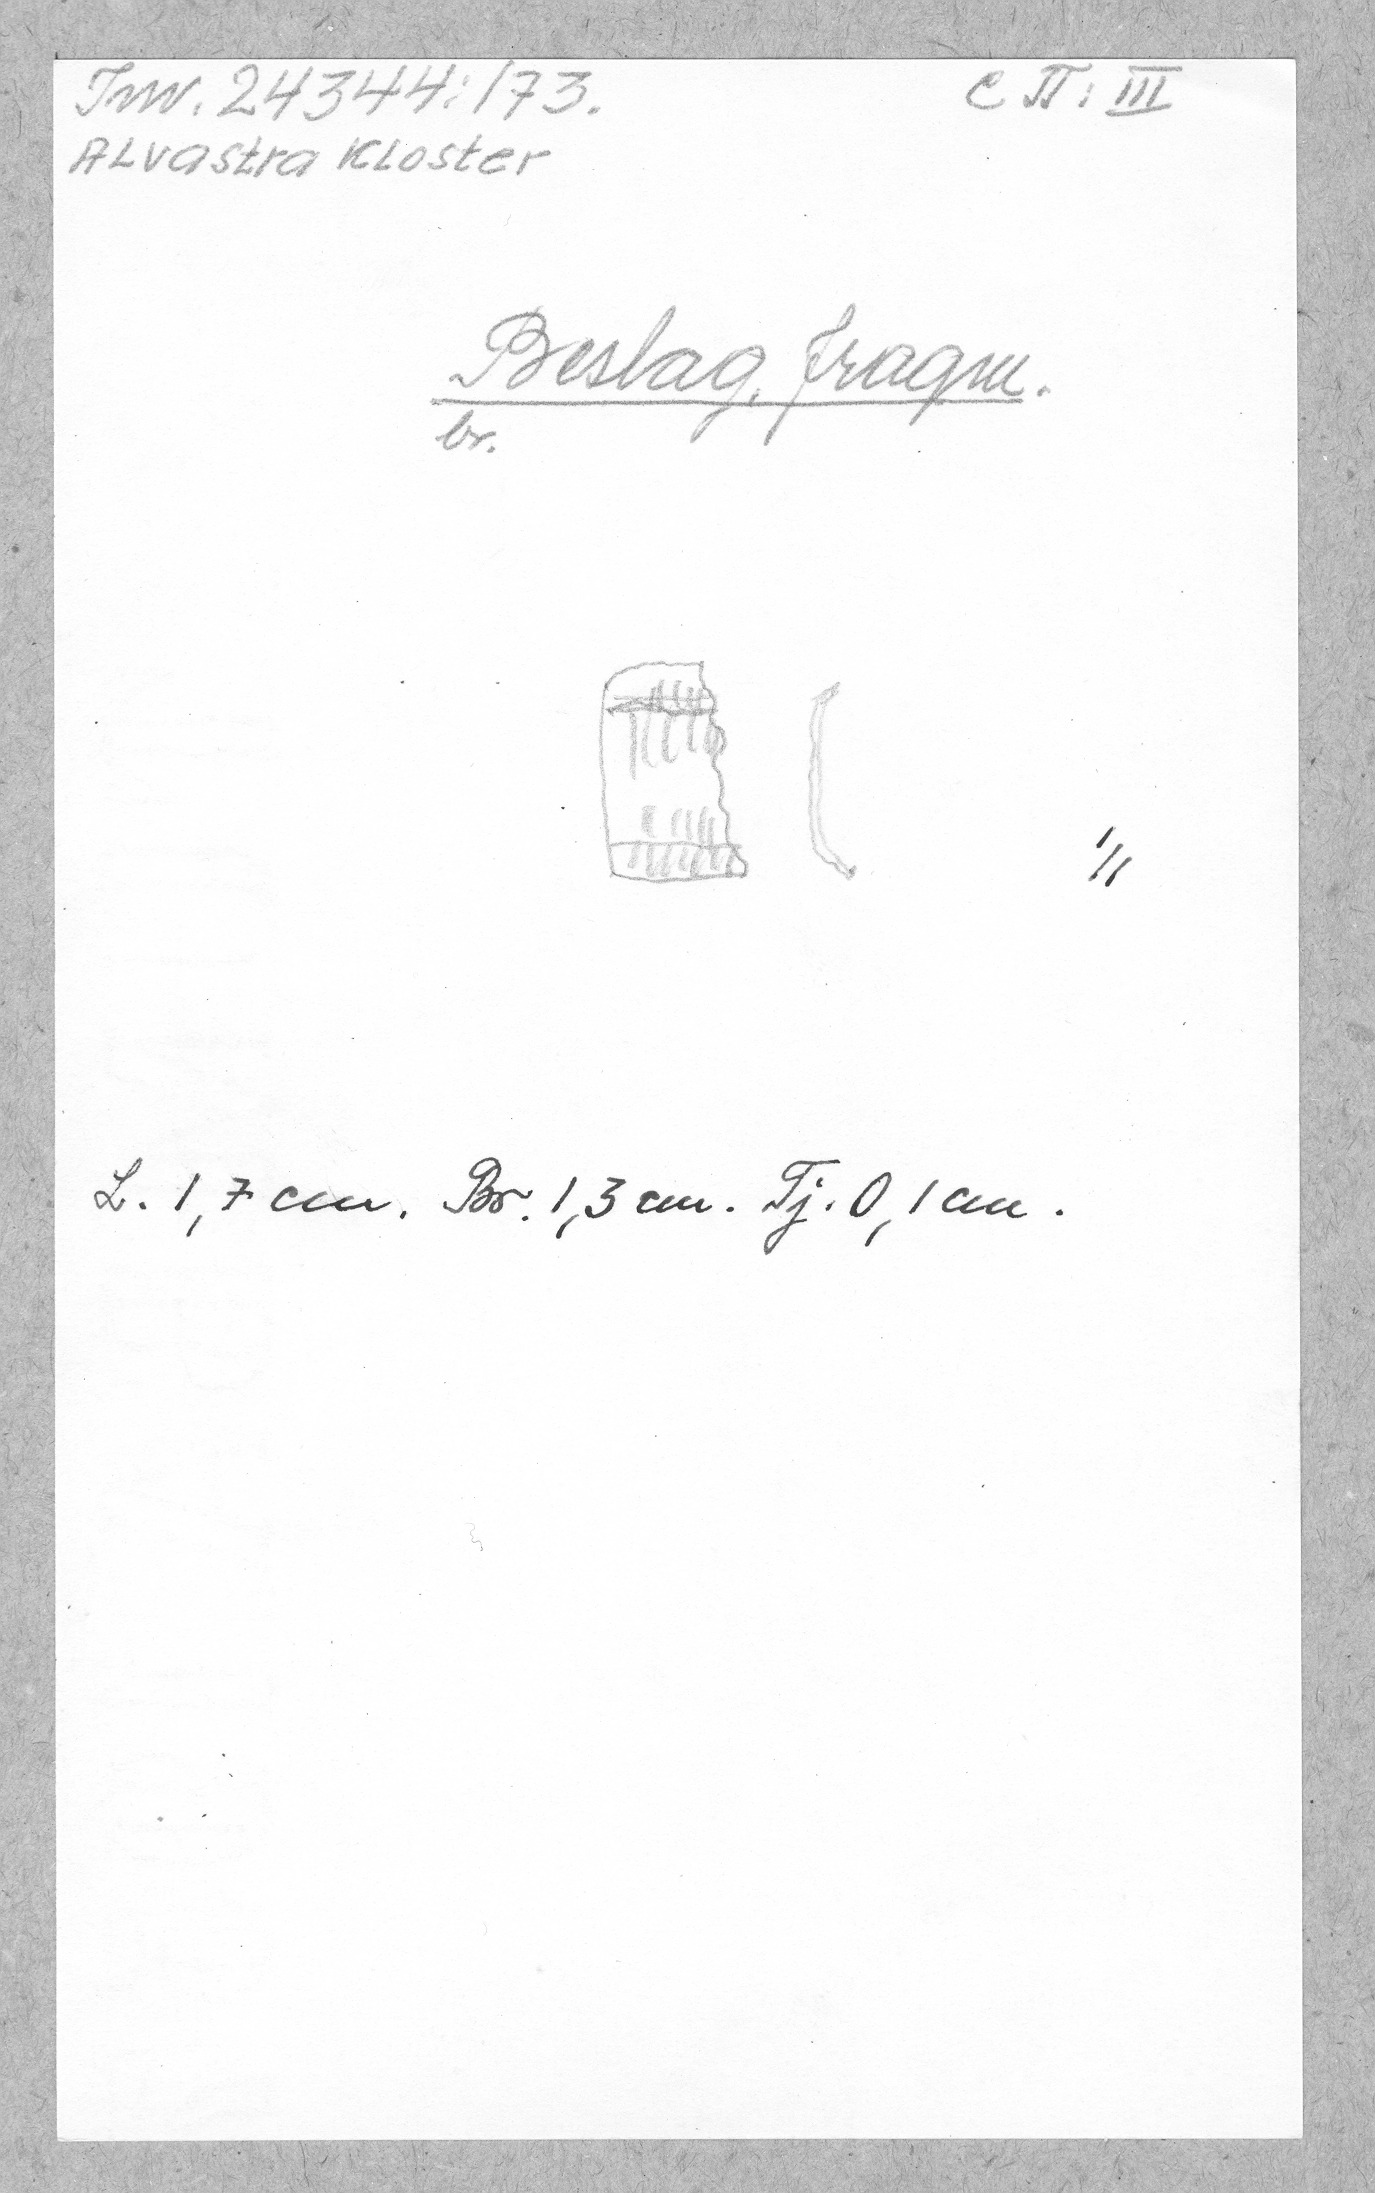 Inv. 24344:173.
C II:III
Alvastra Kloster
Beslag, fragm.
br.
1/1
L. 1,7 cm. Br. 1,3 cm. Tj. 0,1 cm.